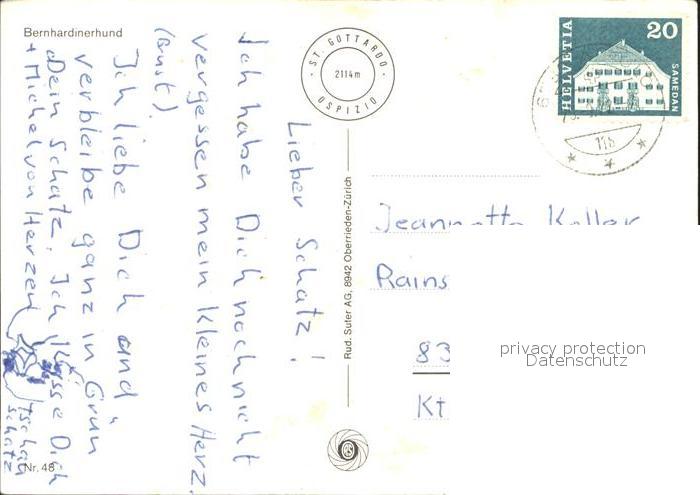 Bernhardinerhund
Lieber Schatz!
Ich habe Dich noch nicht
vergessen mein kleines Herz.
(Bust).
Ich liebe Dich und
verbleibe ganz in Grün
Dein Schatz. Ich küsse Dich
+ Michel von Herzen
tschau
schatz
Nr. 48
· ST. GOTTARDO ·
2114m
OSPIZIO
Rud. Suter AG, 8942 Oberrieden-Zürich
HELVETIA
20
SAMEDAN
Jeannette Keller
Rains
83
Kt
privacy protection
Datenschutz